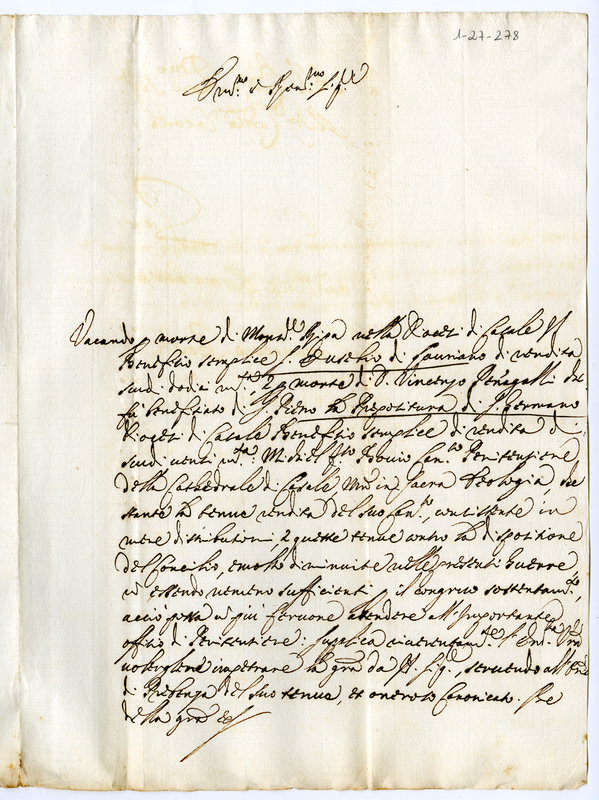 1-27-278
Em.mo e Rev.mo Sig.re
Vacando p morte di Mons.re Ripa nella Diocesi di Casale il
Beneficio semplice S. Eusebio di Sauriano di rendita
scudi dodici m.ta 2 p morte di D. Vincenzo
fù benefitiato di S. Pietro la Prepositura di S. Germano
Diocesi di Casale Beneficio semplice di rendita di
scudi venti m.ta: Michel Can.co Penitentiere
della Cathedrale di Casale, in Sacra Teologia, ste
stante la tenue rendita del suo Can.to, consistente in
mere distributioni, 2 queste tenue contro la dispositione
del Concilio, e molto diminuite nelle presenti Guerre
essendo nemeno sufficienti p il congruo sostentam.to,
acciò possa con più fervore attendere all'importante
offitio di Penitentiere: supplica riverentem.te V. Em.za Rev.ma
volergliene impetrare la gra da N. Sig.re, servendo all'
di Presenza del suo tenue, et oneroso Canonicato. Che
della gra ec.